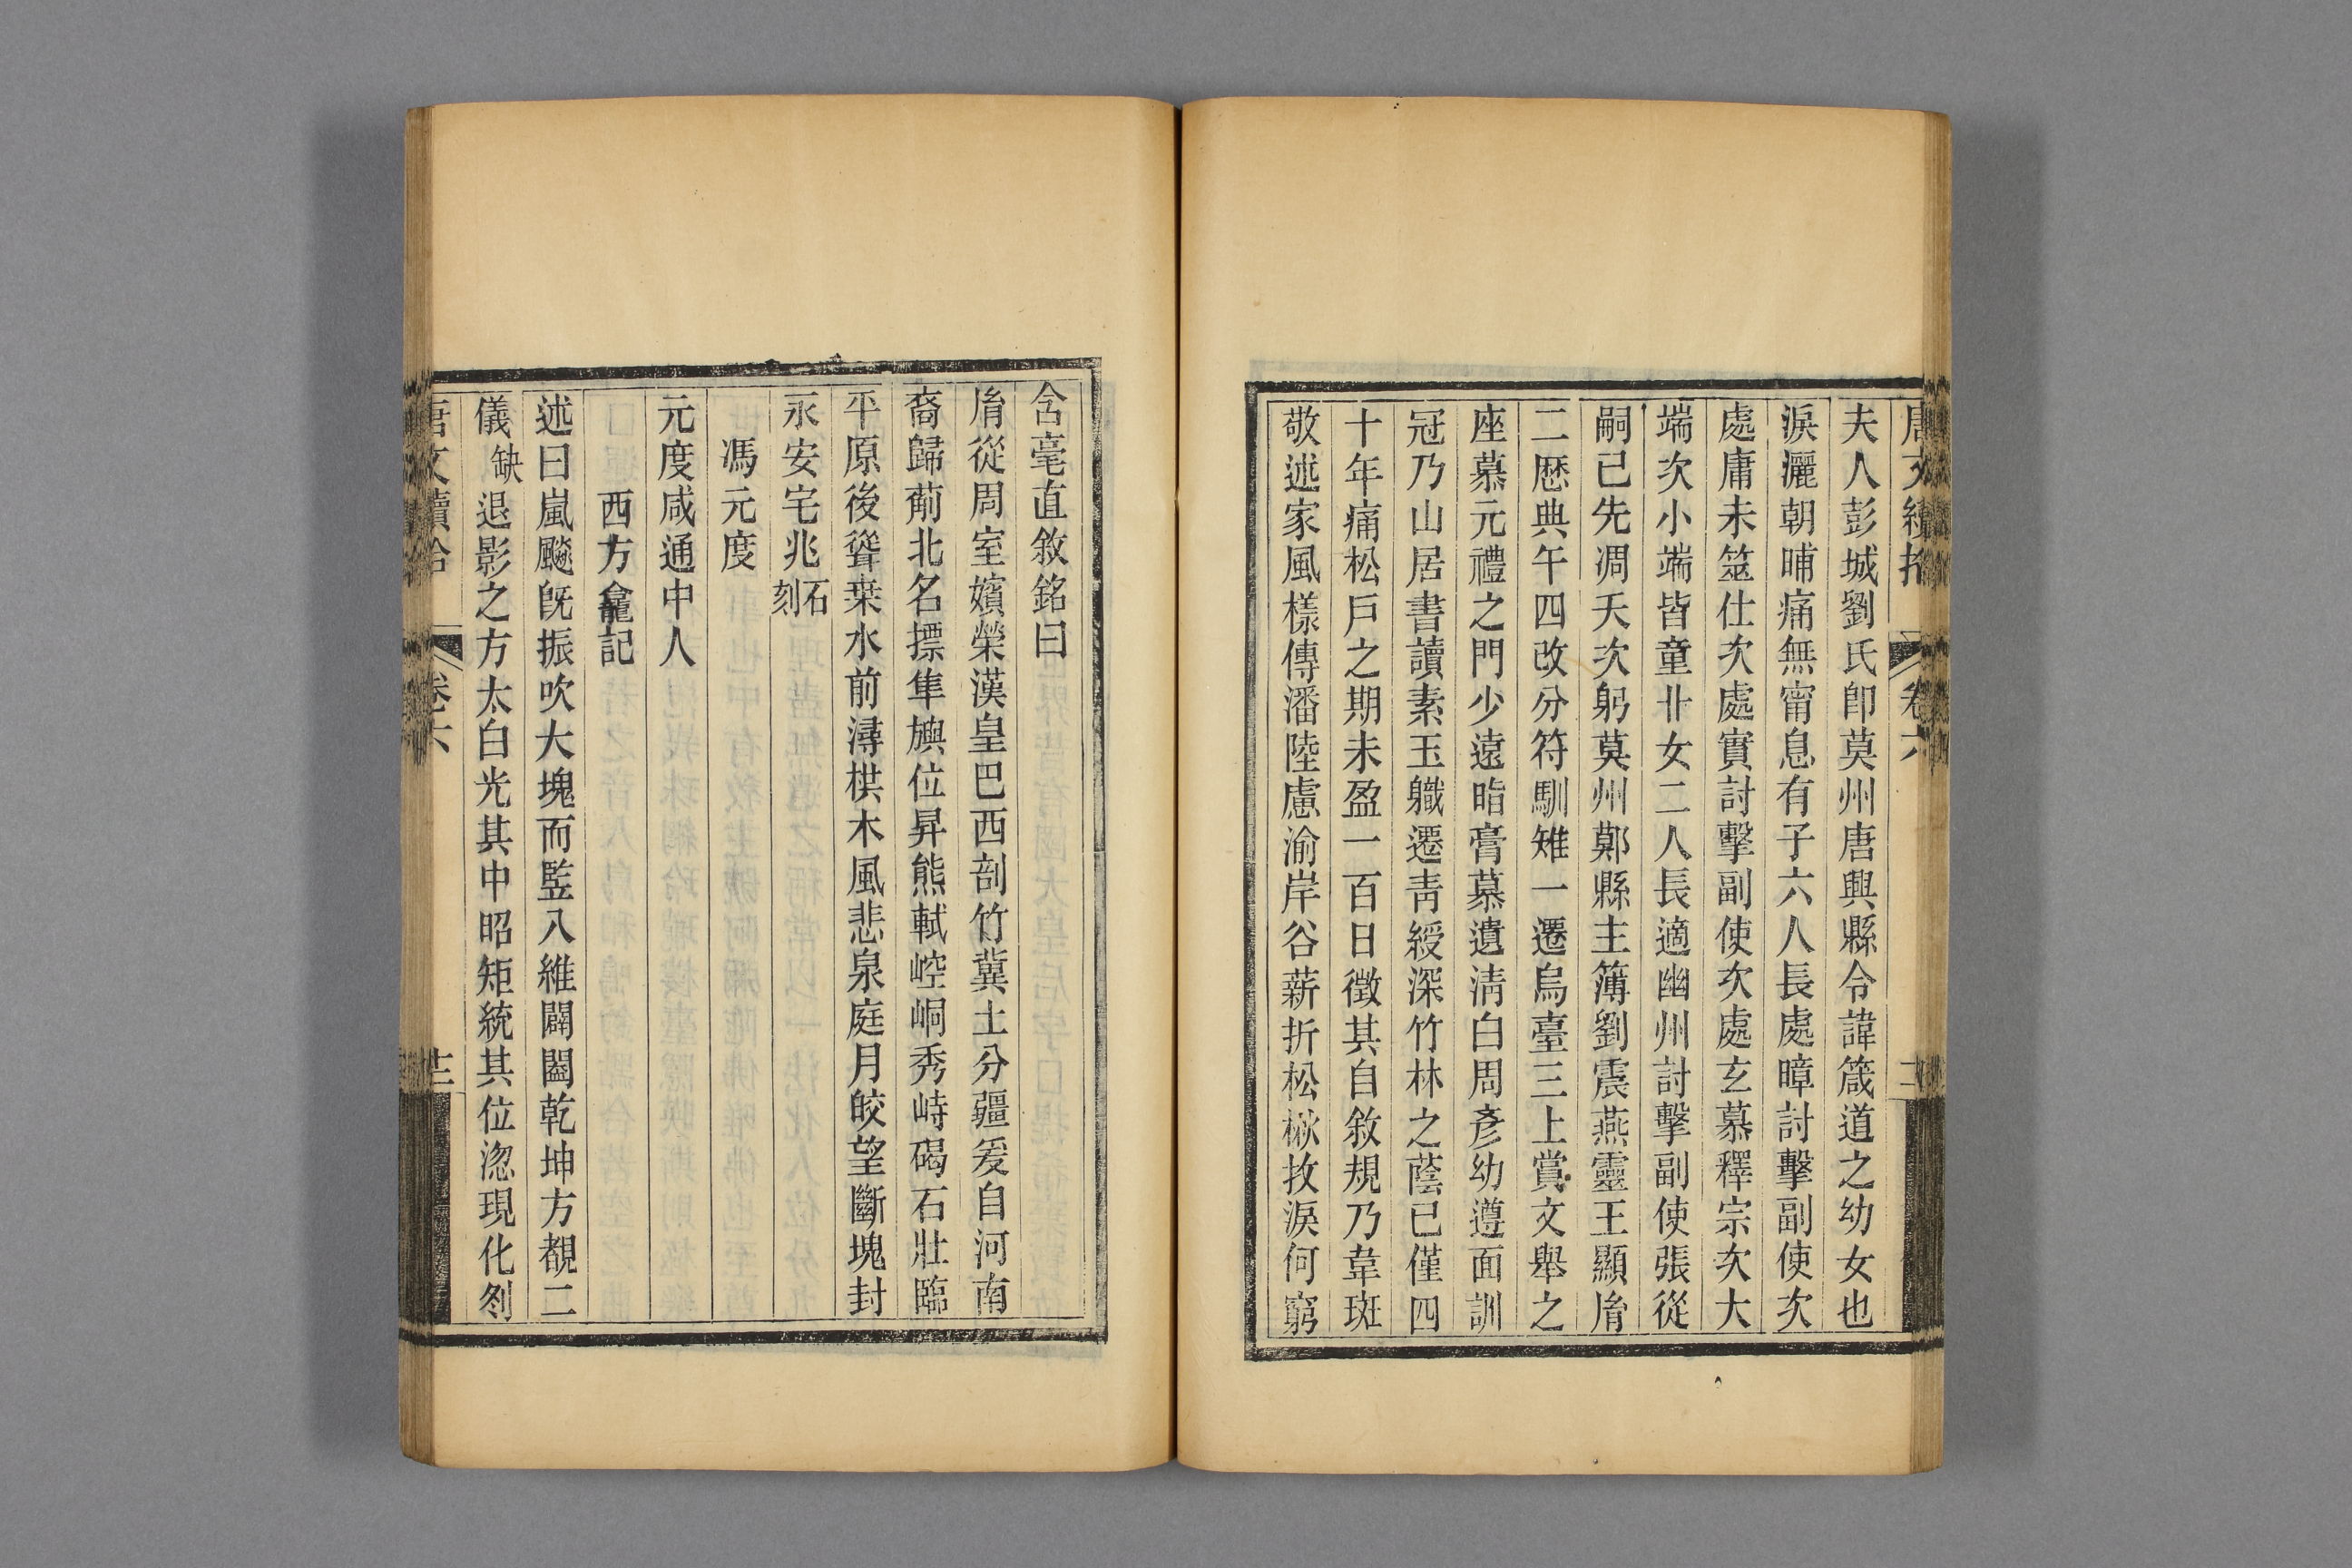 唐文續拾
卷六
夫人彭城劉氏卽莫州唐興縣令諱箴道之幼女也
淚灑朝晡痛無甯息有子六人長處暲討擊副使次
處庸未筮仕次處實討擊副使次處玄慕釋宗次大
端次小端皆童丱女二人長適幽州討擊副使張從
嗣已先凋夭次躬莫州鄚縣主簿劉震燕靈王顯胤
二歷典午四改分符馴雉一遷烏臺三上賞文舉之
座慕元禮之門少遠脂膏慕遺淸白周彥幼遵面訓
冠乃山居書讀素王職遷靑綬深竹林之蔭已僅四
十年痛松戶之期未盈一百日徵其自敘規乃韋斑
敬述家風樣傳潘陸慮渝岸谷薪折松楸抆淚何窮
含毫直敘銘曰
胤從周室嬪榮漢皇巴西剖竹冀土分疆爰自河南
裔歸薊北名摽隼旟位昇熊軾崆峒秀峙碣石壯臨
平原後聳桒水前潯栱木風悲泉庭月皎望斷塊封
永安宅兆石刻
馮元度
元度咸通中人
西方龕記
述曰嵐颷旣振吹大塊而監入維闢闔乾坤方覩二
儀缺退影之方太白光其中昭矩統其位淴現化刽
唐文續拾
卷六